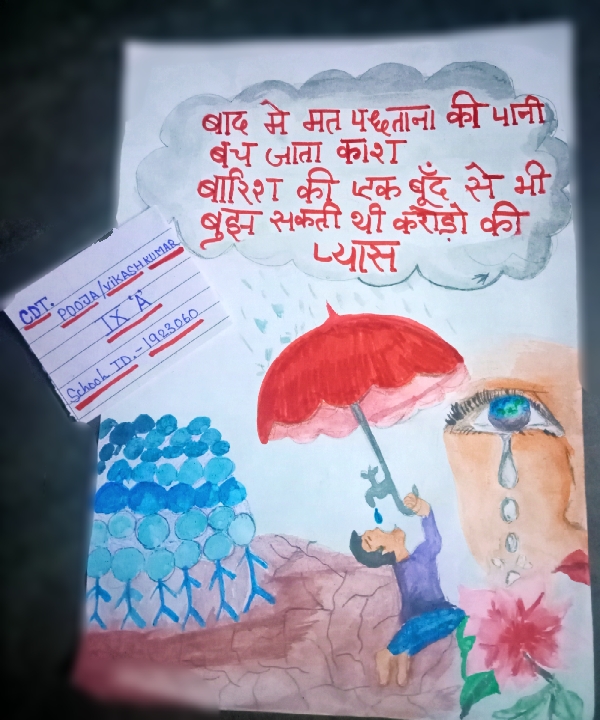 बाद मे मत पछताना की पानी
बच जाता काश
बारिश की एक बूँद से भी
बुझ सकती थी करोड़ो की
प्यास
CDT. POOJA/VIKASH KUMAR
IX 'A'
School ID.-1923060